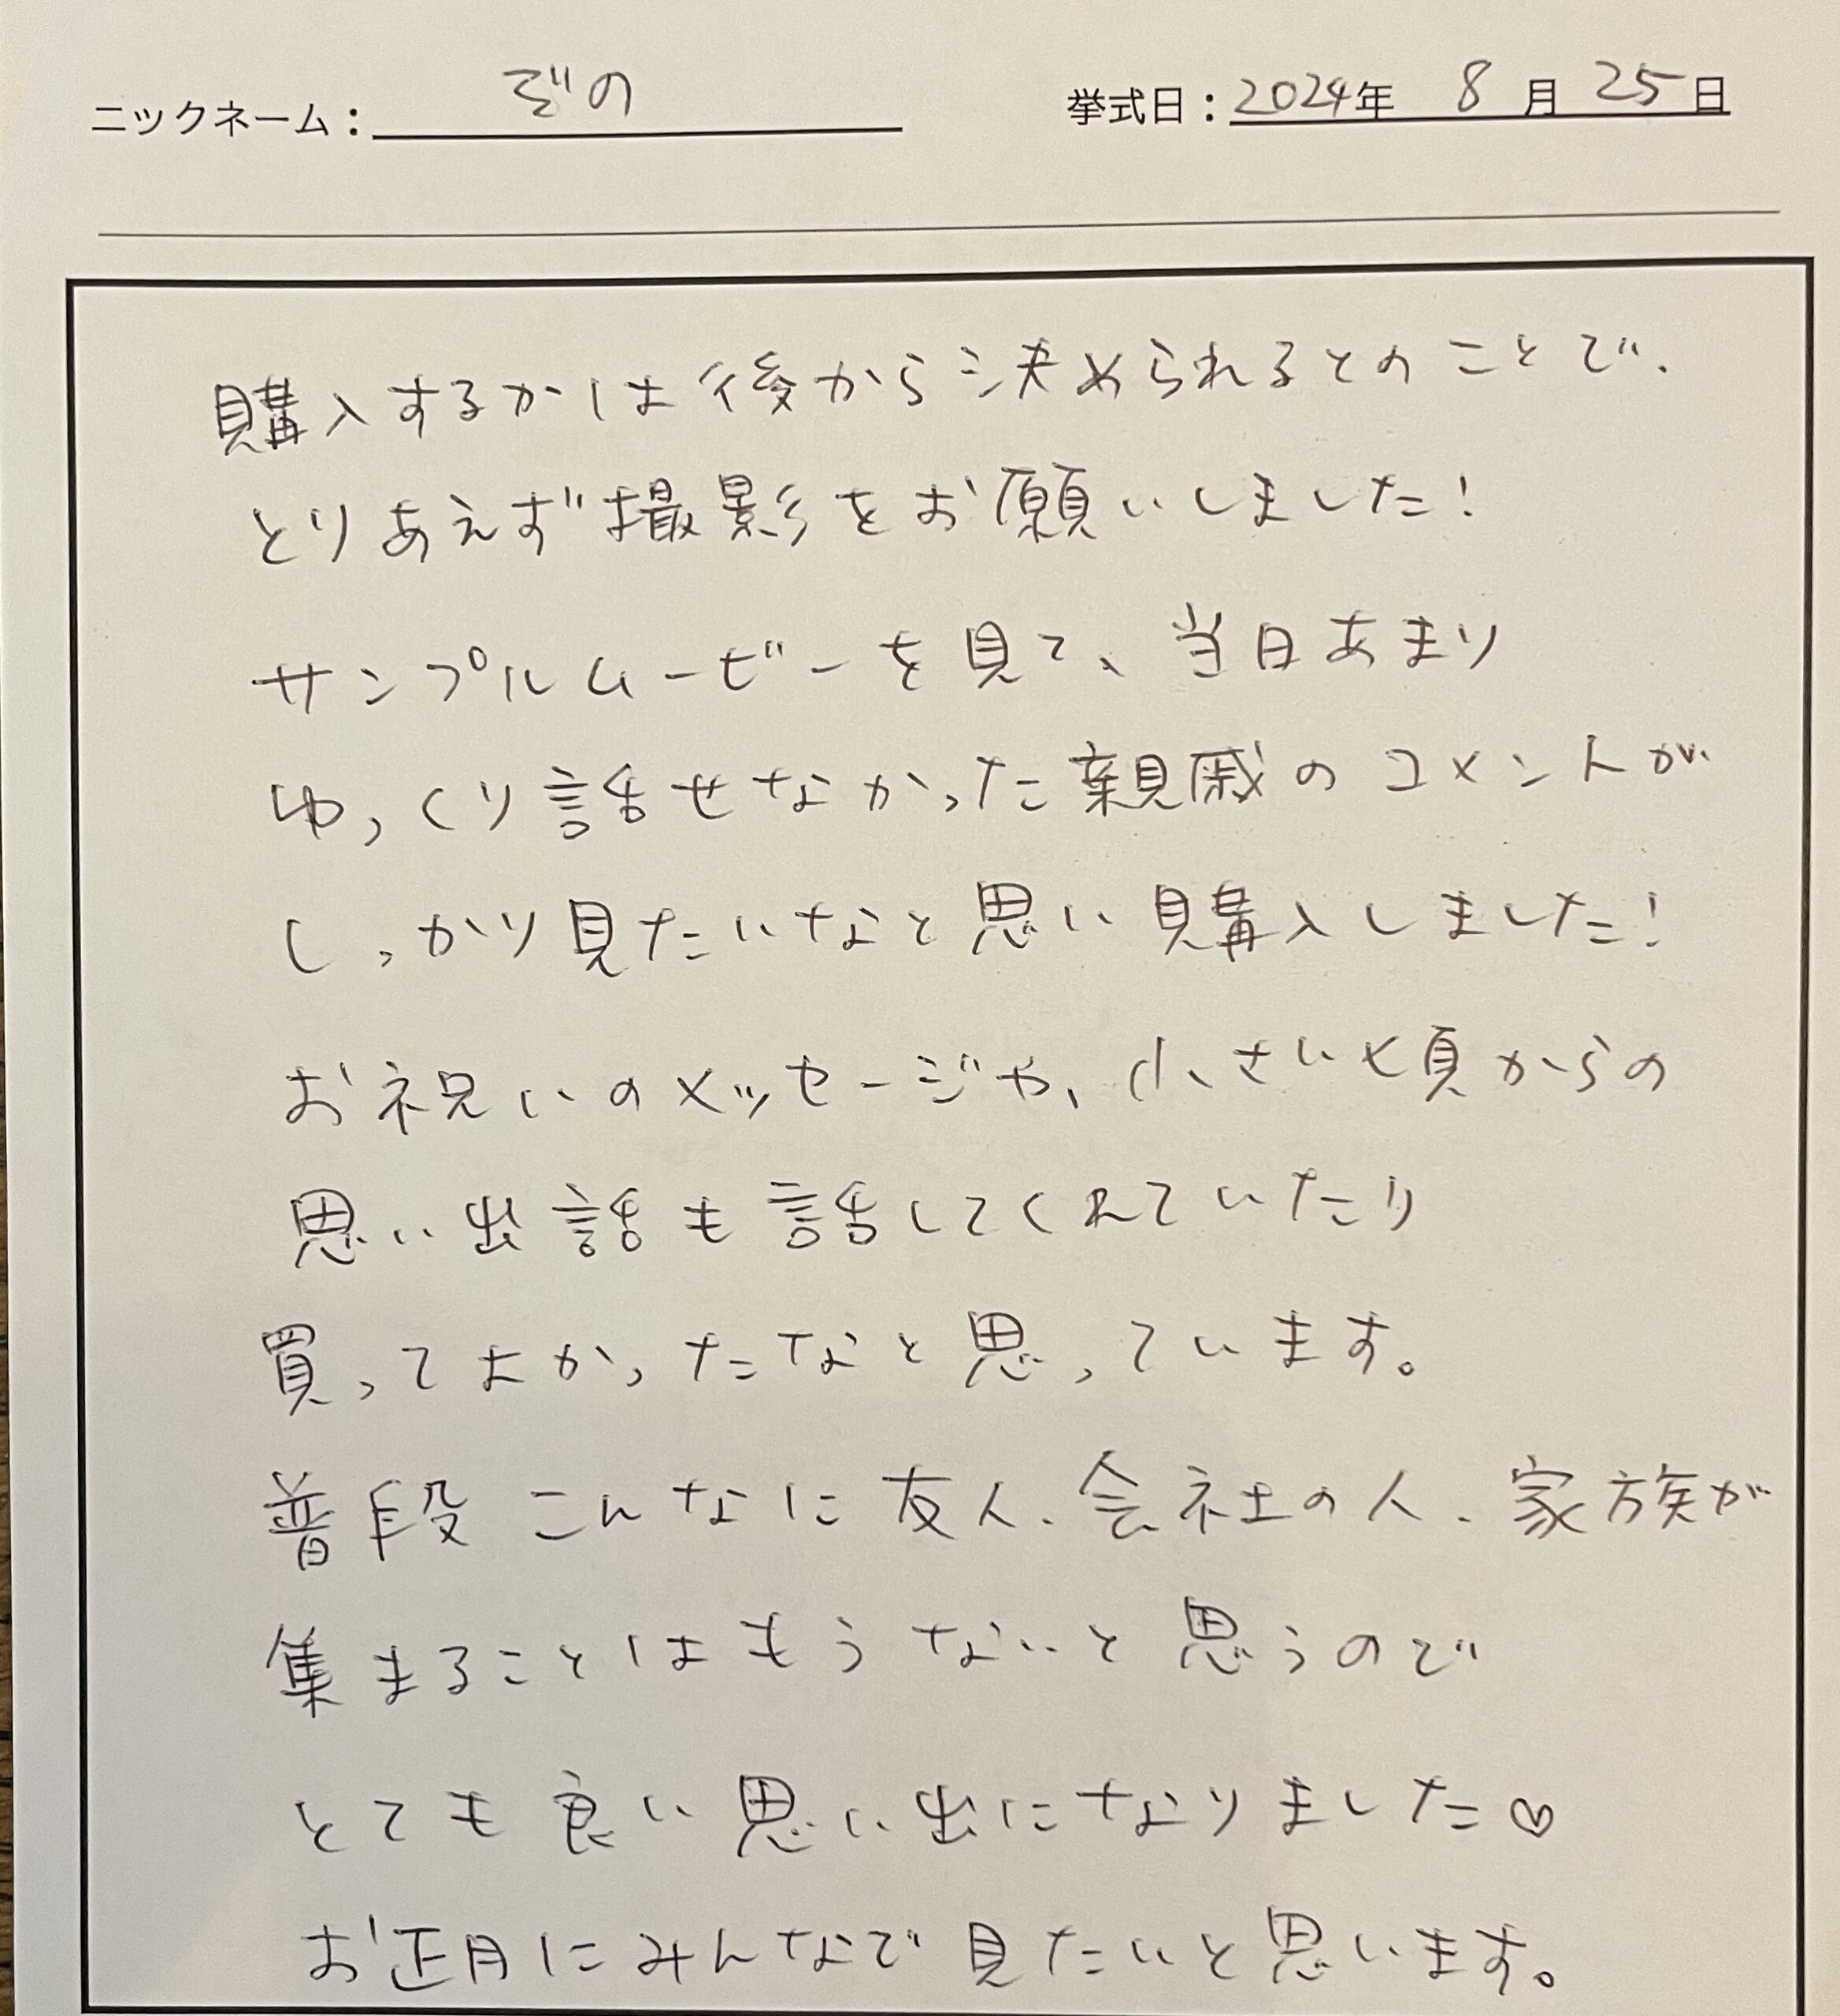 ニックネーム：ぞの
挙式日：2024年 8月 25日
購入するかは後から決められるとのことで、
とりあえず撮影をお願いしました！
サンプルムービーを見て、当日あまり
ゆっくり話せなかった親戚のコメントが
しっかり見たいなと思い購入しました！
お祝いのメッセージや、小さい頃からの
思い出話も話してくれていたり
買ってよかったなと思っています。
普段こんなに友人、会社の人、家族が
集まることはもうないと思うので
とても良い思い出になりました♡
お正月にみんなで見たいと思います。